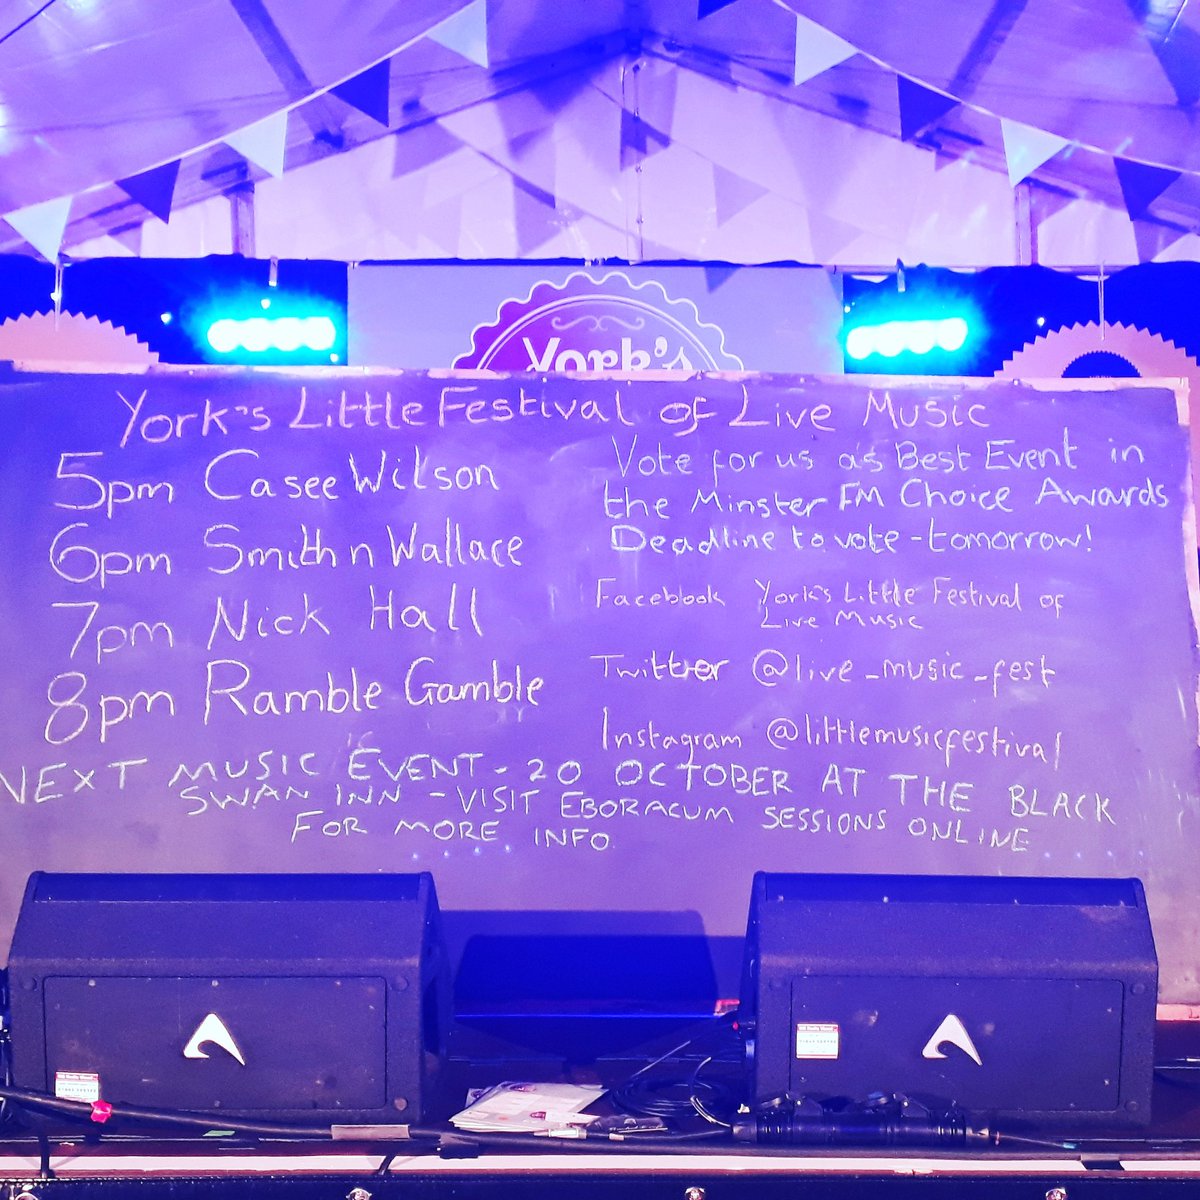 York's
York's Little Festival of Live Music
5pm Casee Wilson
6pm Smith n Wallace
7pm Nick Hall
8pm Ramble Gamble
Vote for us as Best Event in
the Minster FM Choice Awards
Deadline to vote - tomorrow!
Facebook York's Little Festival of
Live Music
Twitter @live_music_fest
Instagram @littlemusicfestival
NEXT MUSIC EVENT - 20 OCTOBER AT THE BLACK
SWAN INN - VISIT EBORACUM SESSIONS ONLINE
FOR MORE INFO